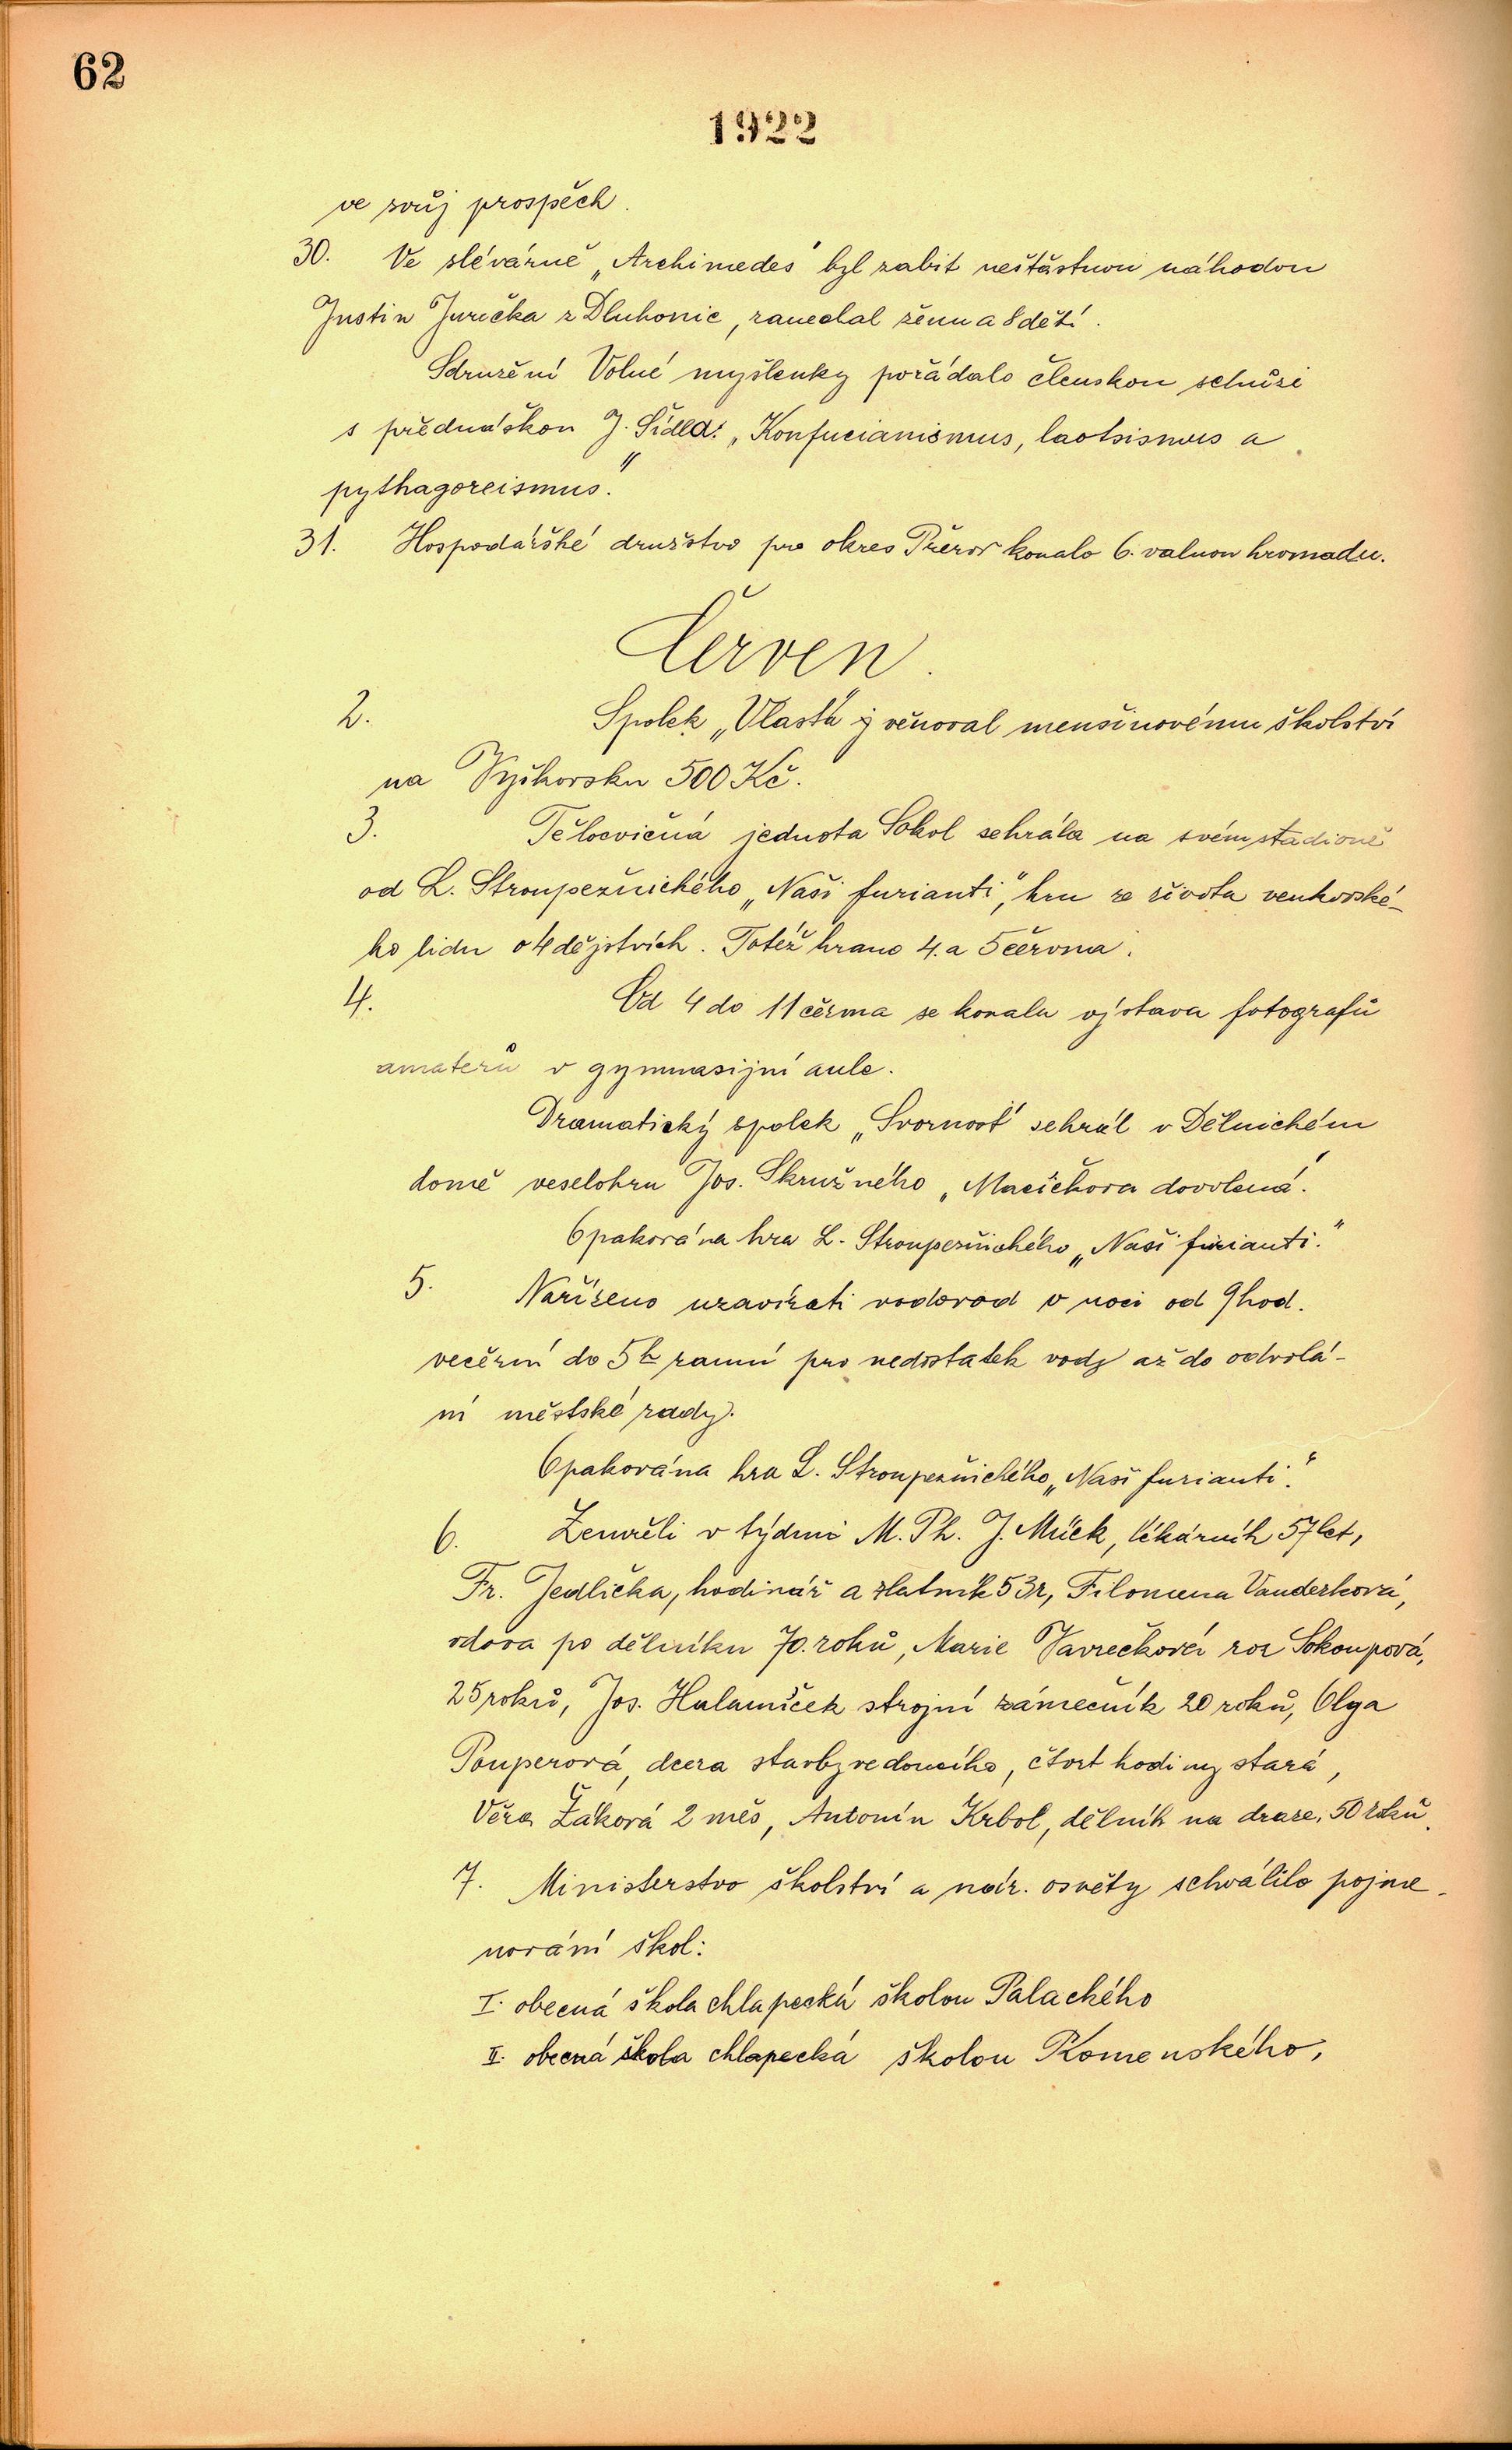 62
1922
ve svůj prospěch.
30. Ve slévárně „Archimedes" byl zabit nešťastnou náhodou
Justin Jurečka z Dluhonic, zanechal ženu a 8 dětí.
Sdružení Volné myšlenky pořádalo členskou schůzi
s přednáškou J. Šídla: „Konfucianismus, laotsismus a
pythagoreismus."
31. Hospodářské družstvo pro okres Přerov konalo 6. valnou hromadu.
Červen.
2. Spolek „Vlasta" věnoval menšinovému školství
na Vyškovsku 500 Kč.
3. Tělocvičná jednota Sokol sehrála na svém stadioně
od L. Stroupežnického „Naši furianti", hru ze života venkovské-
ho lidu o 4 dějstvích. Totéž hrano 4. a 5 června.
4. Od 4 do 11 června se konala výstava fotografů
amaterů v gymnasijní aule.
Dramatický spolek „Svornost" sehrál v Dělnickém
domě veselohru Jos. Skružného „Macíčkova dovolená".
Opakována hra L. Stroupežnického „Naši furianti."
5. Nařízeno uzavírati vodovod v noci od 9 hod.
večerní do 5h ranní pro nedostatek vody až do odvolá-
ní městské rady.
Opakována hra L. Stroupežnického „Naši furianti".
6. Zemřeli v týdnu M. Ph. J. Müek, lékárník 57 let,
Fr. Jedlička, hodinář a zlatník 53 r, Filomena Vanderková,
vdova po dělníku 70. roků, Marie Vavrečková roz Sokoupová,
25 roků, Jos. Halamíček strojní zámečník 20 roků, Olga
Pouperová, dcera stavbyvedoucího, čtvrt hodiny stará,
Věra Žáková 2 měs, Antonín Krbol, dělník na draze, 50 roků.
7. Ministerstvo školství a nár. osvěty schválilo pojme-
nování škol:
I. obecná škola chlapecká školou Palackého
II. obecná škola chlapecká školou Komenského,